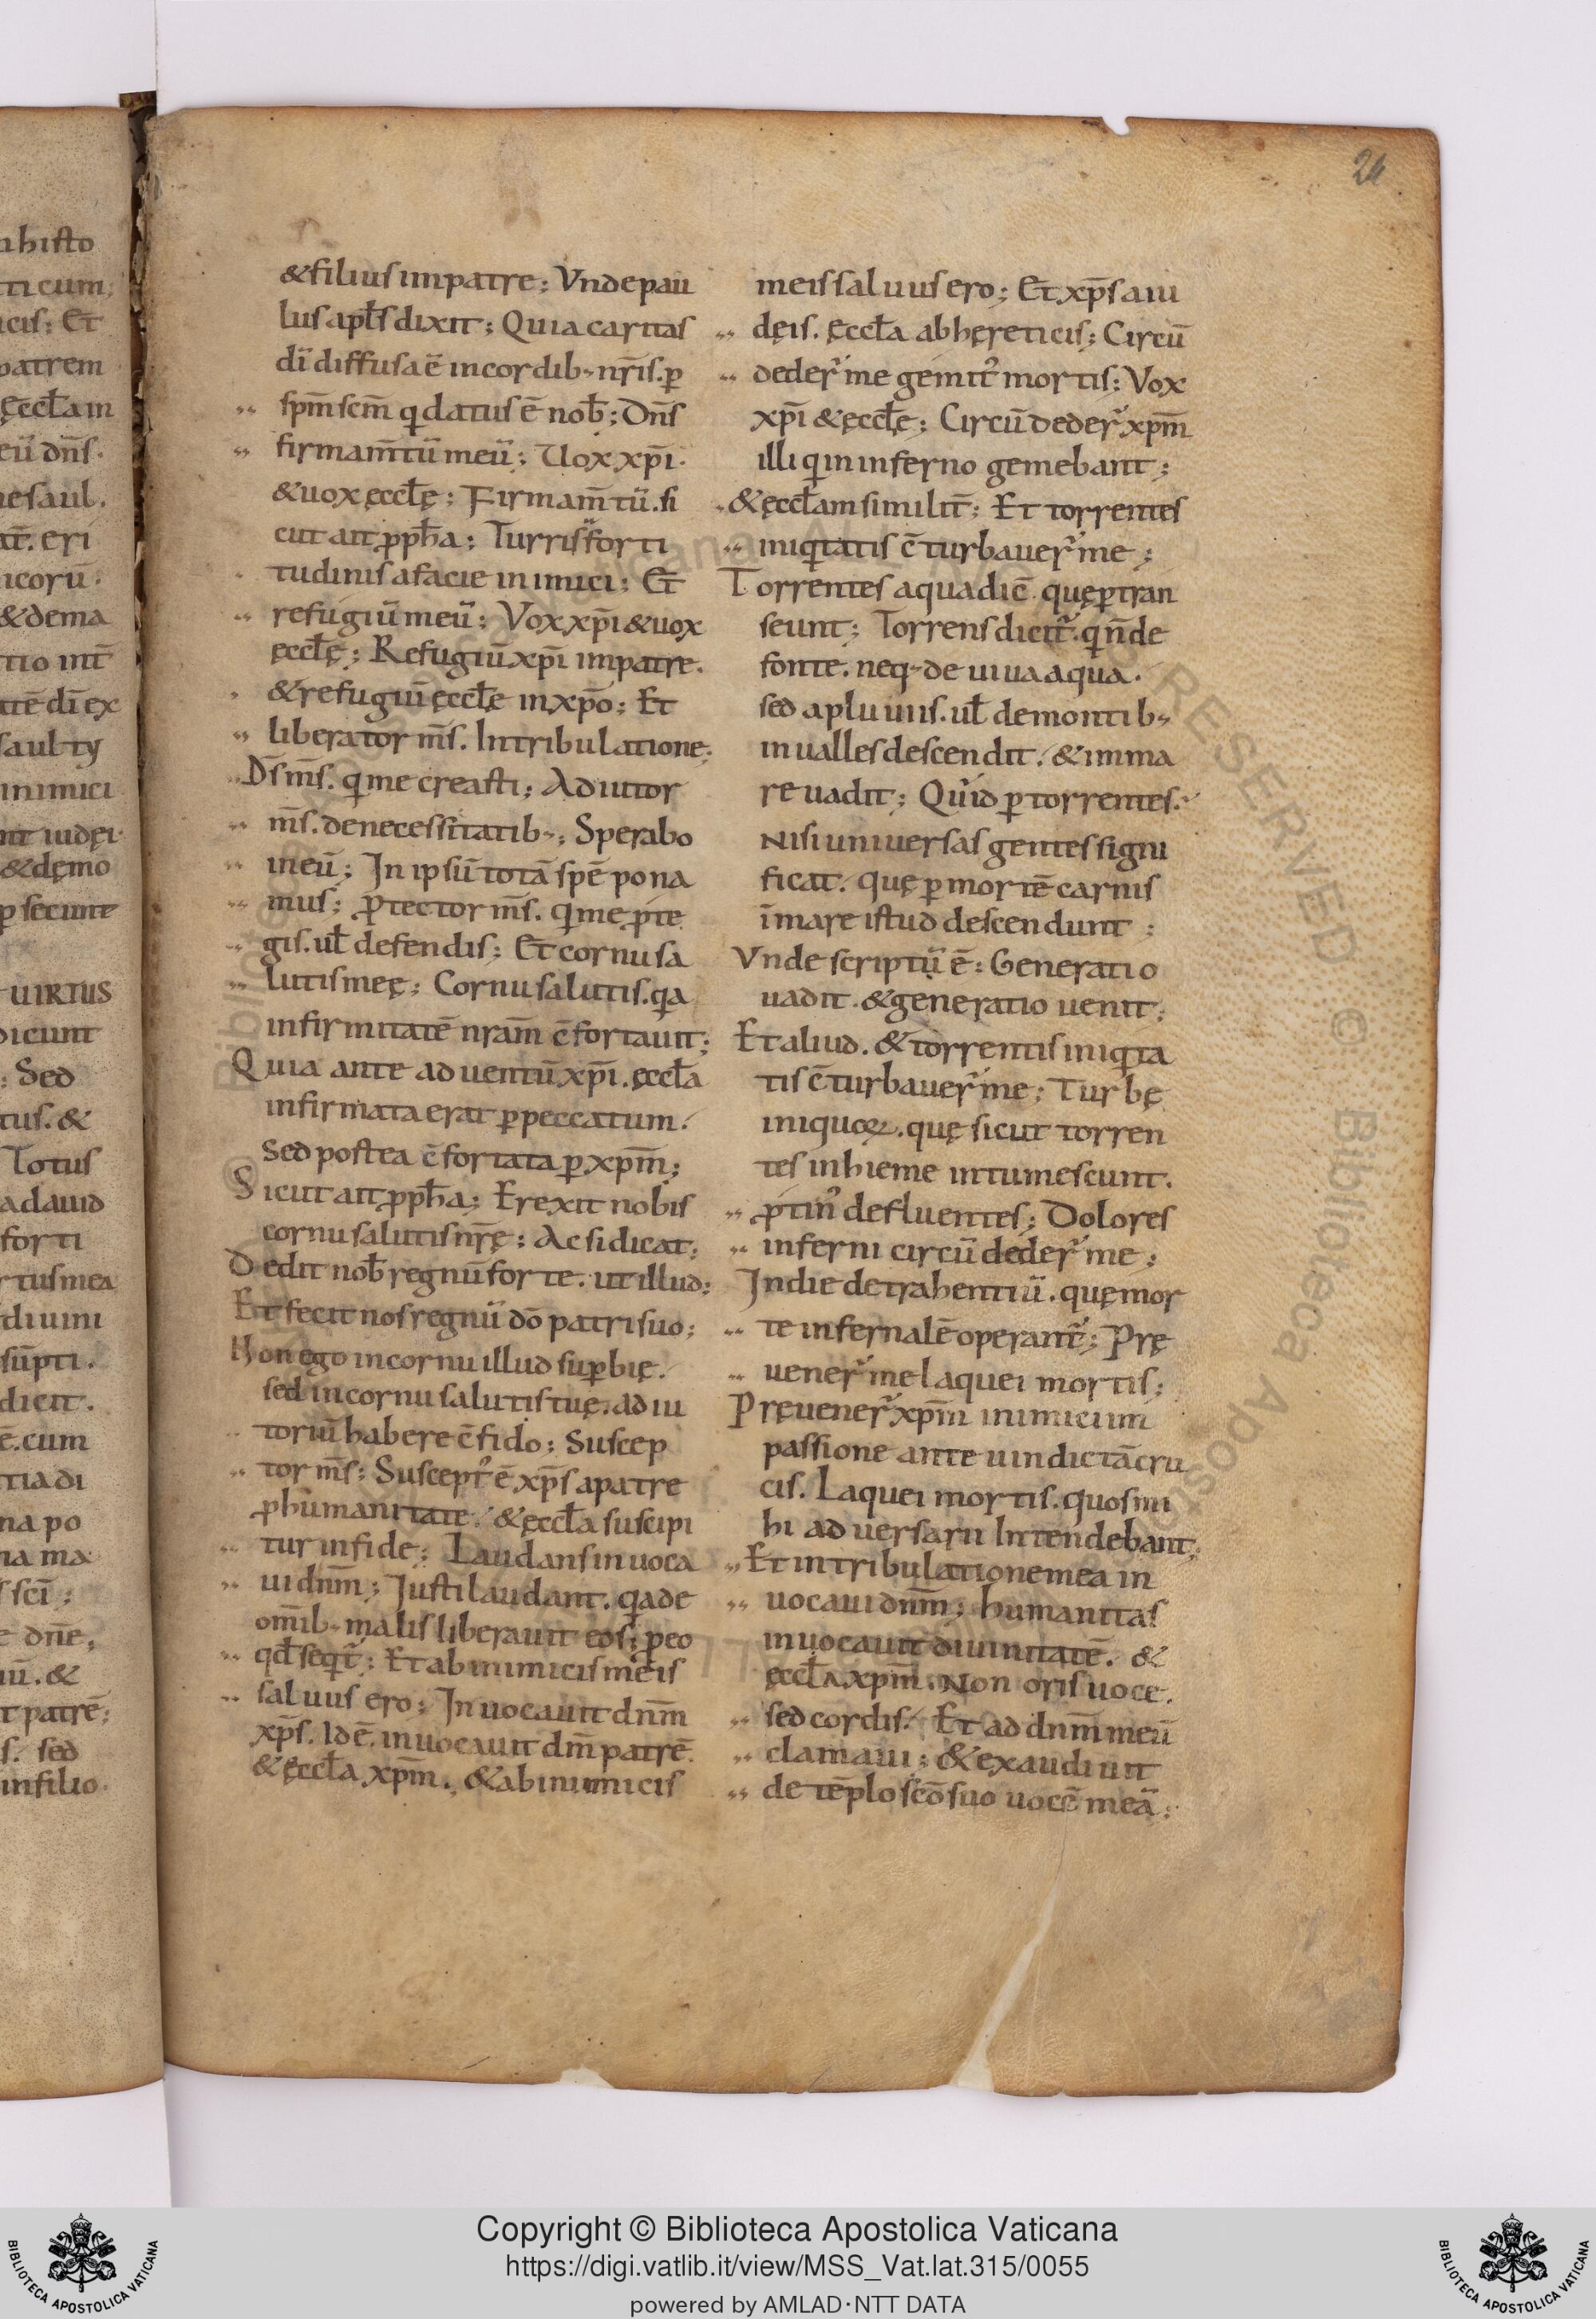 24
&filius inpatre; Vnde pau
lus apłs dixit; Quia caritas
dī diffusa ē incordib; nr̄is. ꝑ
sp̄m sc̄m q datus ē nob̄; Dn̄s
firmam̄tū meū; Uox xp̄i.
&uox ęccłę; Firmam̄tū. si
cut ait ꝓph̄a; Turris forti
tudinis afacie inimici; Et
refugiū meū; Vox xp̄i &uox
ęccłę; Refugiū xp̄i inpatre.
&refugiū ęccłę in xp̄o; Et
liberator m̄s. Intribulatione;
D̄s m̄s. q me creasti; Adiutor
m̄s. denecessitatib;; Sperabo
ineū; In ipsū totā spē pona
mus; ꝓtector m̄s. q me ꝓte
gis. uł defendis; Et cornu sa
lutis meę; Cornu salutis. qa
infirmitatē nr̄am c̄fortauit;
Quia ante aduentū xp̄i. ęccła
infirmata erat ꝑ peccatum.
sed postea c̄fortata ꝑ xp̄m;
Sicut ait ꝓph̄a; Erexit nobis
cornu salutis nr̄ę; Ac si dicat;
Dedit nob̄ regnū forte. ut illud;
Et fecit nos regnū dō patri suo;
Non ego incornu illud suꝑbię.
sed incornu salutis tuę. adiu
toriū habere c̄fido; Suscep
tor m̄s; Suscept᾽ ē xp̄s apatre
ꝓ humanitate. &ęccła suscipi
tur infide; Laudans inuoca
ui dn̄m; Justi laudant. qa de
om̄ib; malis liberauit eos; ꝓ eo
qđ seqt᾽; Et ab inimicis meis
saluus ero; Inuocauit dn̄m
xp̄s. Id ē. inuocauit dm̄ patrē.
&ęccła xp̄m. &ab inimicis
meis saluus ero; Et xp̄s a iu
dęis. ęccła ab hęreticis; Circū
deder᾽ me gemit᾽ mortis; Vox
xp̄i &ęccłę; Circū deder᾽ xp̄m
illi q in inferno gemebant;
&ęccłam similit̄; Et torrentes
iniqtatis c̄turbauer᾽ me;
Torrentes aqua dic̄. quę ꝑtran
seunt; Torrens dicit᾽. q n̄ de
fonte. neq; de uiua aqua.
sed a pluuiis. uł demontib;
inualles descendit. &imma
re uadit; Quid ꝑ torrentes.
Nisi uniuersas gentes signi
ficat. quę ꝑ mortē carnis
ī mare istud descendunt;
Vnde scriptū ē; Generatio
uadit. &generatio uenit;
Et aliud. &torrentis iniqta
tis c̄turbauer᾽ me; Turbę
iniquoꝝ. quę sicut torren
tes inhieme intumescunt.
ꝓtin᾽ defluentes; Dolores
inferni circū deder᾽ me;
In die detrahentiū. quę mor
te infernalē operant᾽; Prę
uener᾽ me laquei mortis;
Pręuener᾽ xp̄m inimici im
passione ante uindictā cru
cis. Laquei mortis. quos mi
hi aduersarii intendebant;
Et intribulatione mea in
uocaui dn̄m; humanitas
inuocauit diuinitatē. &
ęccła xp̄m. Non oris uoce.
sed cordis. Et ad dn̄m meū
clamaui; &exaudiuit
de tēplo sc̄o suo uocē meā;
Copyright © Biblioteca Apostolica Vaticana
https://digi.vatlib.it/view/MSS_Vat.lat.315/0055
powered by AMLAD·NTT DATA
BIBLIOTECA APOSTOLICA VATICANA
BIBLIOTECA APOSTOLICA VATICANA